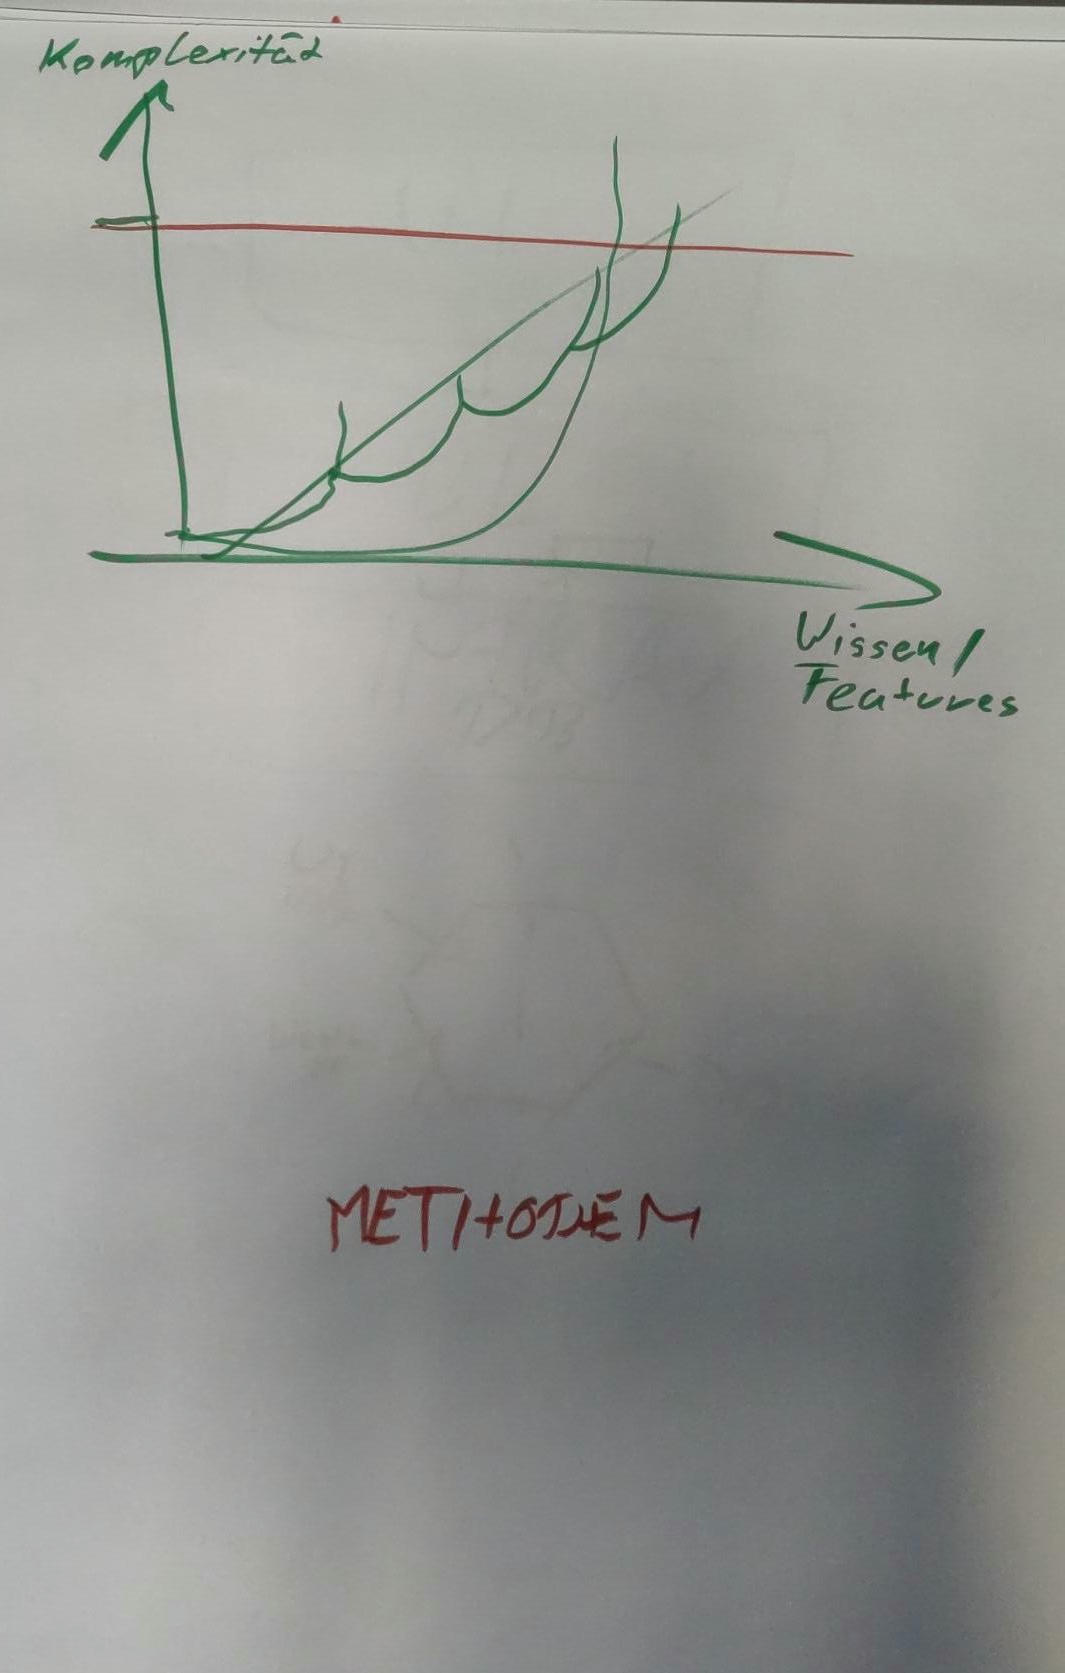 Komplexität
Wissen/
Features
METHODEM